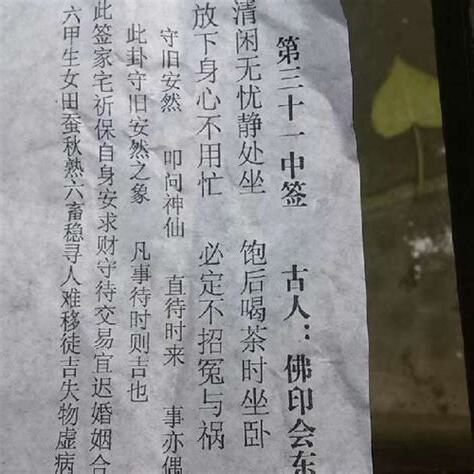 第三十一中签 古人：佛印会东
清闲无忧静处坐 饱后喝茶时坐卧
放下身心不用忙 必定不招冤与祸
守旧安然 叩问神仙 直待时来 事亦偶
此卦守旧安然之象 凡事待时则吉也
此签家宅祈保自身安求财守待交易宜迟婚姻合
六甲生女田蚕秋熟六畜稳寻人难移徒吉失物虚病